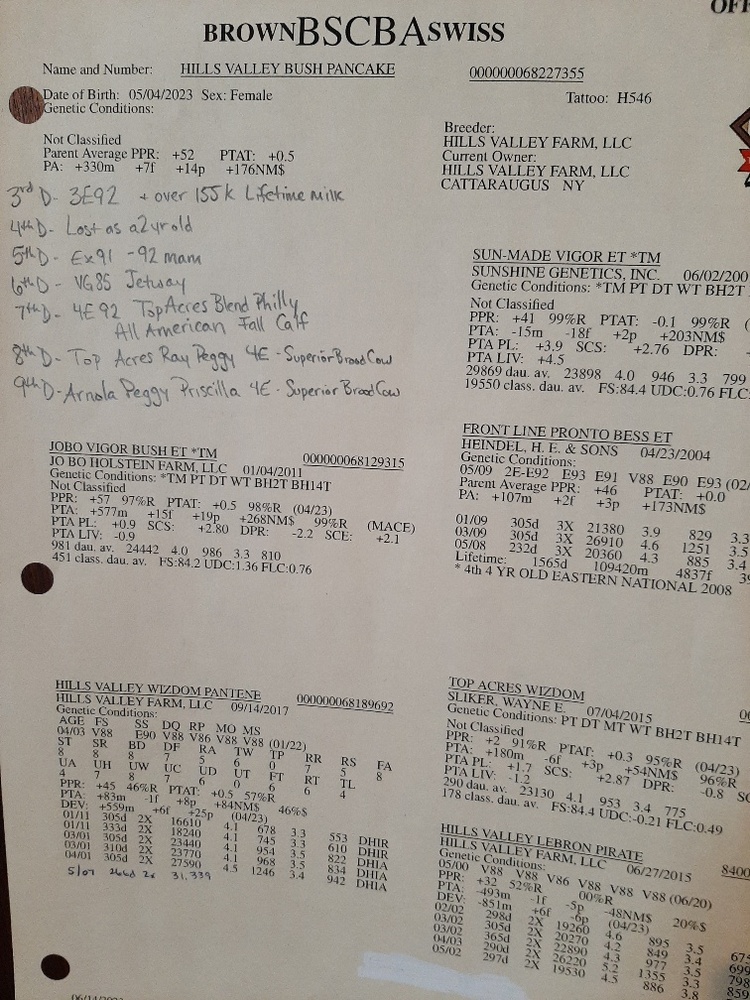 OFF
BROWN BSCBA SWISS
Name and Number: HILLS VALLEY BUSH PANCAKE 000000068227355
Date of Birth: 05/04/2023 Sex: Female Tattoo: H546
Genetic Conditions:
Not Classified
Parent Average PPR: +52 PTAT: +0.5
PA: +330m +7f +14p +176NM$
Breeder:
HILLS VALLEY FARM, LLC
Current Owner:
HILLS VALLEY FARM, LLC
CATTARAUGUS NY
3rd D- 3E92 + over 155k Lifetime milk
4th D- Lost as a 2yr old
5th D- Ex91 -92 mam
6th D- VG85 Jetway
7th D- 4E92 Top Acres Blend Philly
All American Fall Calf
8th D- Top Acres Ray Peggy 4E - Superior Brood Cow
9th D- Arnola Peggy Priscilla 4E - Superior Brood Cow
SUN-MADE VIGOR ET *TM
SUNSHINE GENETICS, INC. 06/02/200
Genetic Conditions: *TM PT DT WT BH2T
Not Classified
PPR: +41 99%R PTAT: -0.1 99%R
PTA: -15m -18f +2p +203NM$
PTA PL: +3.9 SCS: +2.76 DPR:
PTA LIV: +4.5
29869 dau. av. 23898 4.0 946 3.3 799
19550 class. dau. av. FS:84.4 UDC:0.76 FLC:
JOBO VIGOR BUSH ET *TM 000000068129315
JO BO HOLSTEIN FARM, LLC 01/04/2011
Genetic Conditions: *TM PT DT WT BH2T BH14T
Not Classified
PPR: +57 97%R PTAT: +0.5 98%R (04/23)
PTA: +577m +15f +19p +268NM$ 99%R (MACE)
PTA PL: +0.9 SCS: +2.80 DPR: -2.2 SCE: +2.1
PTA LIV: -0.9
981 dau. av. 24442 4.0 986 3.3 810
451 class. dau. av. FS:84.2 UDC:1.36 FLC:0.76
FRONT LINE PRONTO BESS ET
HEINDEL, H. E. & SONS 04/23/2004
Genetic Conditions:
05/09 2E-E92 E93 E91 V88 E90 E93 (02/
Parent Average PPR: +46 PTAT: +0.0
PA: +107m +2f +3p +173NM$
01/09 305d 3X 21380 3.9 829 3.3
03/09 305d 3X 26910 4.6 1251 3.5
05/08 232d 3X 20360 4.3 885 3.4
Lifetime: 1565d 109420m 4837f
* 4th 4 YR OLD EASTERN NATIONAL 2008
HILLS VALLEY WIZDOM PANTENE 000000068189692
HILLS VALLEY FARM, LLC 09/14/2017
Genetic Conditions:
AGE FS SS DQ RP MO MS
04/03 V88 E90 V88 V86 V88 V88 (01/22)
ST SR BD DF RA TW TP RR RS FA
8 8 8 7 5 6 0 7 5 8
UA UH UW UC UD UT FT RT TL
4 7 8 7 6 0 6 6 4
PPR: +45 46%R PTAT: +0.5 57%R
PTA: +83m -1f +8p +84NM$ 46%$
DEV: +559m +6f +25p (04/23)
01/11 305d 2X 16610 4.1 678 3.3 553 DHIR
01/11 333d 2X 18240 4.1 745 3.3 610 DHIR
03/01 305d 2X 23440 4.1 954 3.5 822 DHIA
03/01 310d 2X 23770 4.1 968 3.5 834 DHIA
04/01 305d 2X 27590 4.5 1246 3.4 942 DHIA
5/07 266d 2x 31,339
TOP ACRES WIZDOM
SLIKER, WAYNE E. 07/04/2015
Genetic Conditions: PT DT MT WT BH2T BH14T
Not Classified
PPR: +2 91%R PTAT: +0.3 95%R (04/23)
PTA: +180m -6f +3p +54NM$ 96%R
PTA PL: +1.7 SCS: +2.87 DPR: -0.8
PTA LIV: -1.2
290 dau. av. 23130 4.1 953 3.4 775
178 class. dau. av. FS:84.4 UDC:-0.21 FLC:0.49
HILLS VALLEY LEBRON PIRATE 8400
HILLS VALLEY FARM, LLC 06/27/2015
Genetic Conditions:
05/00 V88 V88 V86 V88 V88 V88 (06/20)
PPR: +32 52%R 00%R
PTA: -493m -1f -5p -48NM$ 20%$
DEV: -851m +6f -6p (04/23)
02/02 298d 2X 19260 4.6 895 3.5
03/02 305d 2X 20270 4.2 849 3.4
03/02 365d 2X 22890 4.3 977 3.5
04/03 290d 2X 26220 5.2 1355 3.3
05/02 297d 2X 19530 4.5 886 3.8